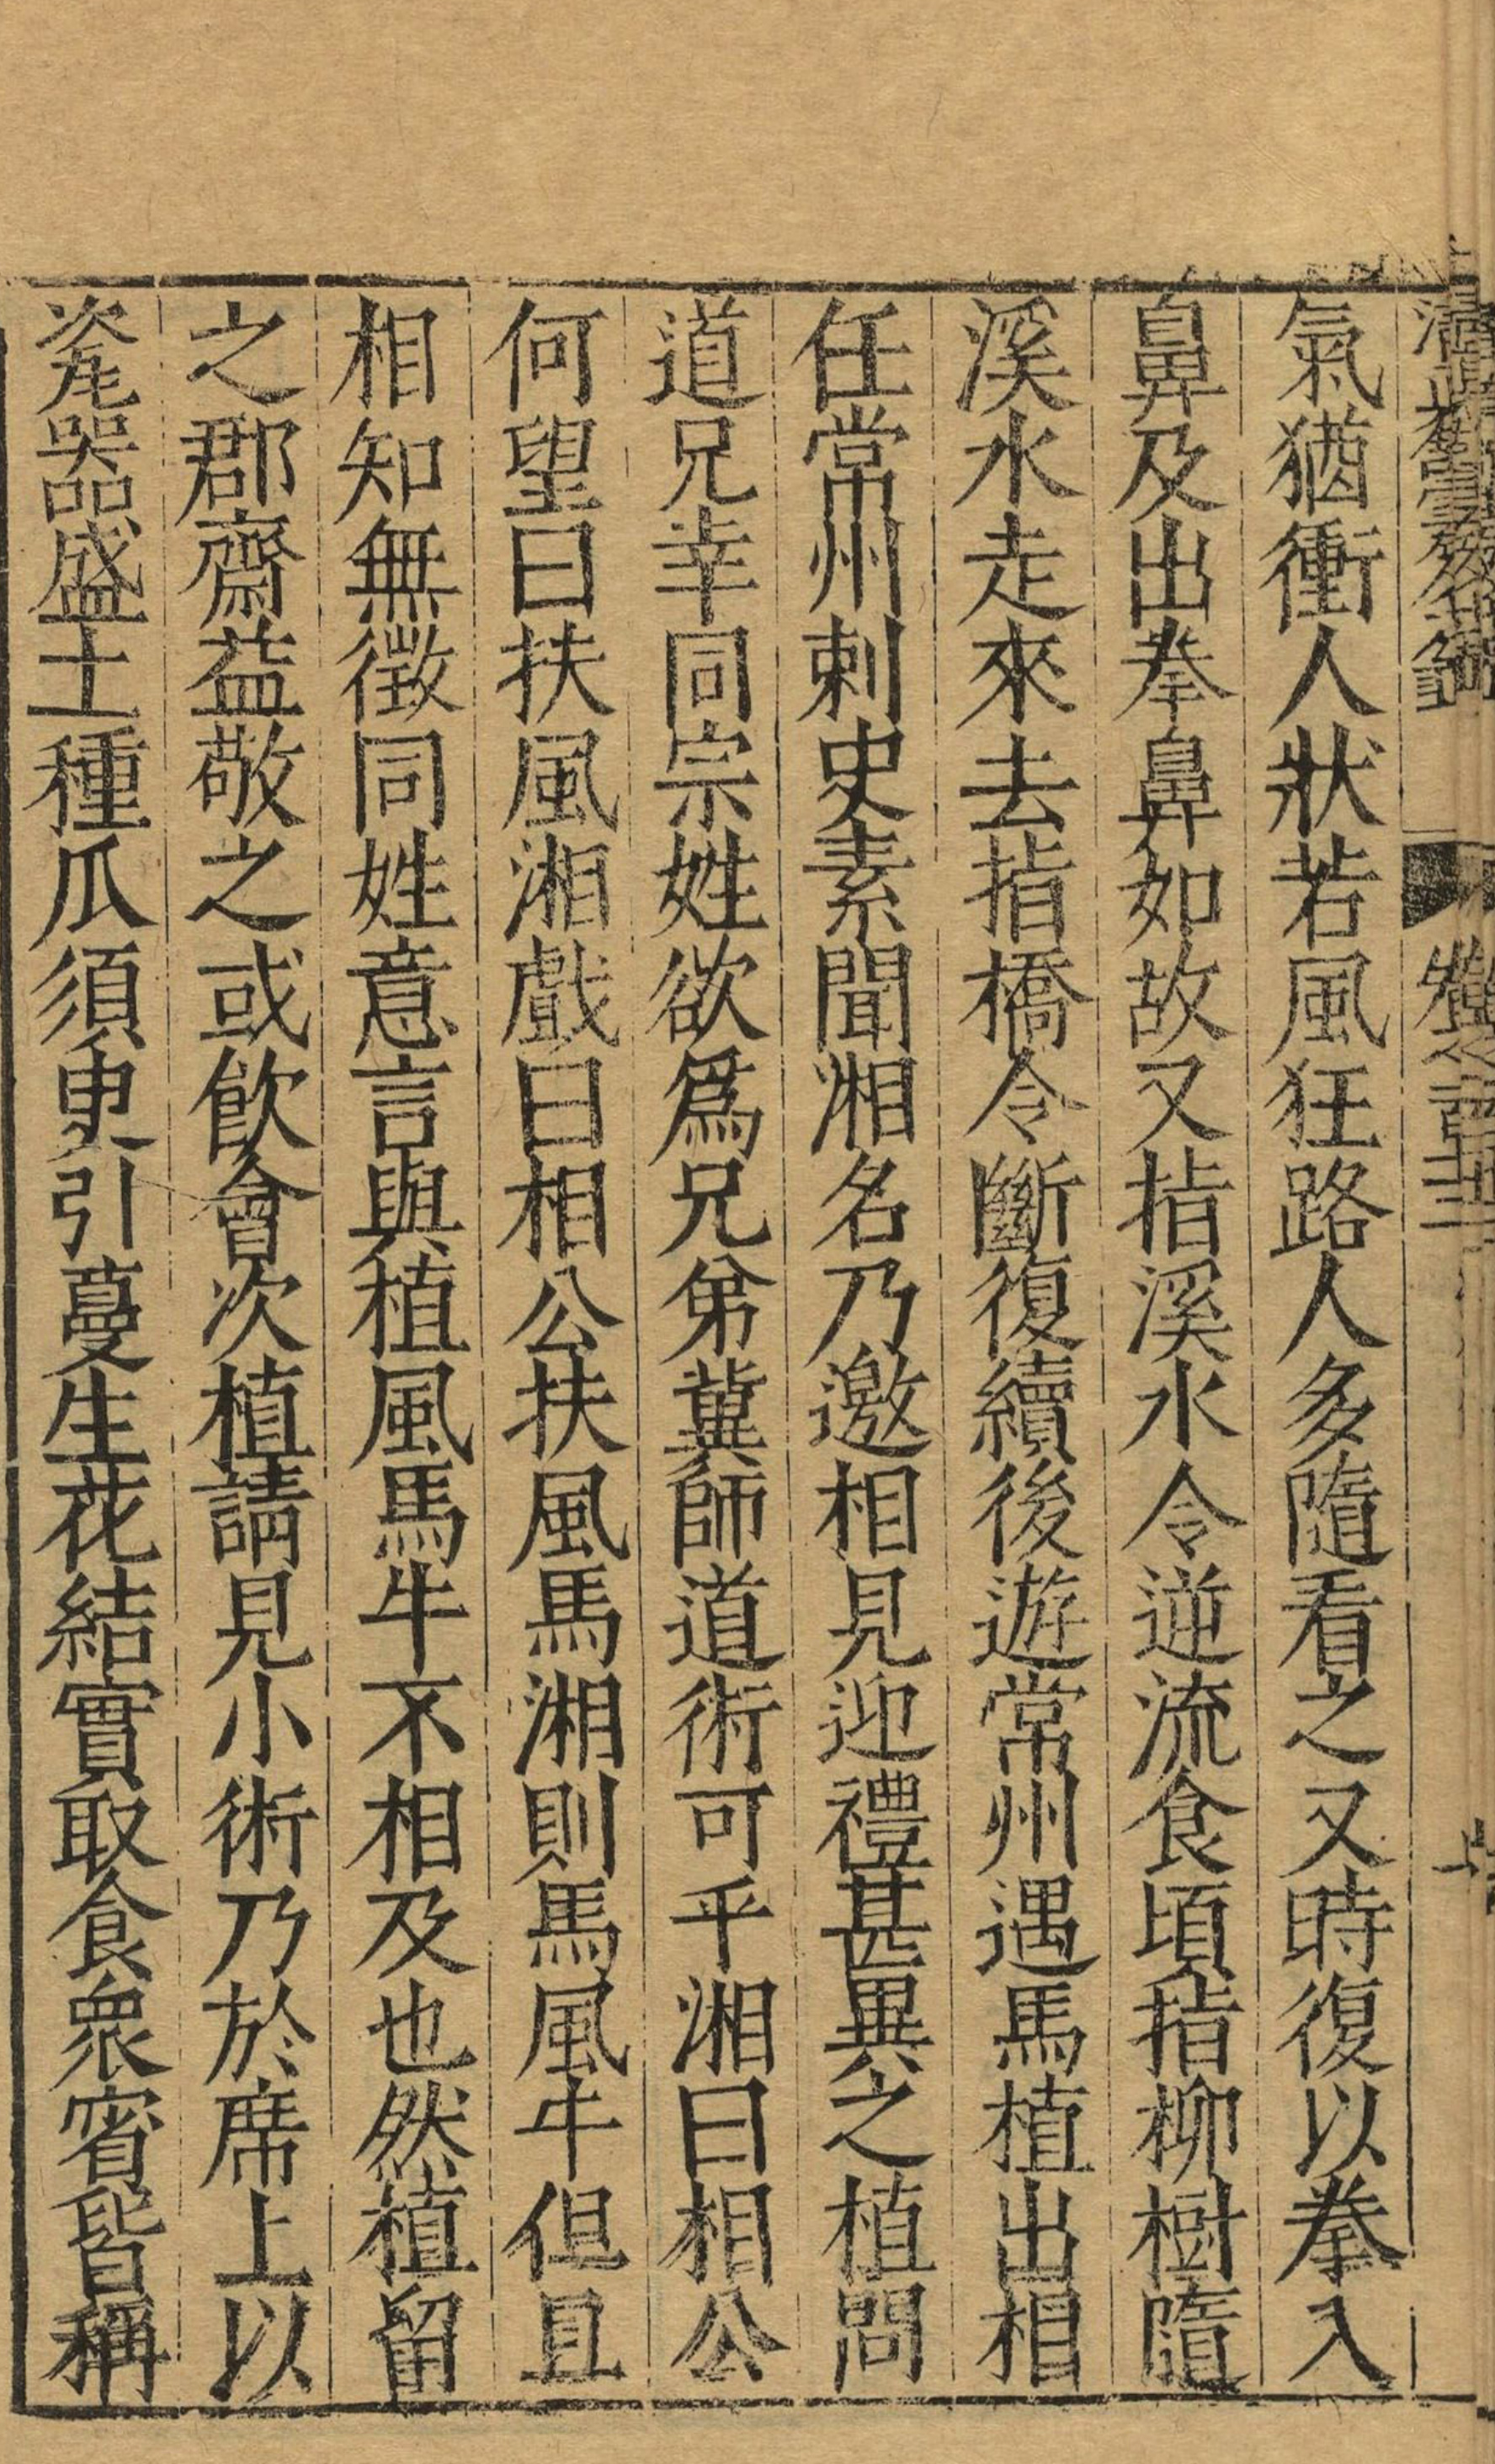 氣猶衝人狀若風狂路人多隨看之又時復以拳入
鼻及出拳鼻如故又指溪水令逆流食頃指柳樹隨
溪水走來去指橋令斷復續後遊常州遇馬植出相
任常州刺史素聞湘名乃邀相見迎禮甚異之植問
道兄幸同宗姓欲爲兄弟冀師道術可乎湘曰相公
何望曰扶風湘戲曰相公扶風馬湘則馬風牛但且
相知無徵同姓意言與植風馬牛不相及也然植留
之郡齋益敬之或飲會次植請見小術乃於席上以
瓷器盛土種瓜須臾引蔓生花結實取食衆賓皆稱